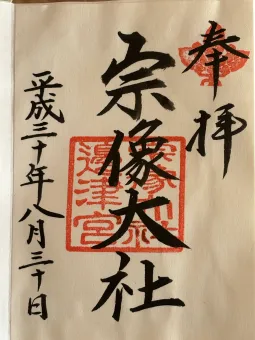 奉拝
宗像大社
平成三十年八月三十日
宗像大社
邊津宮